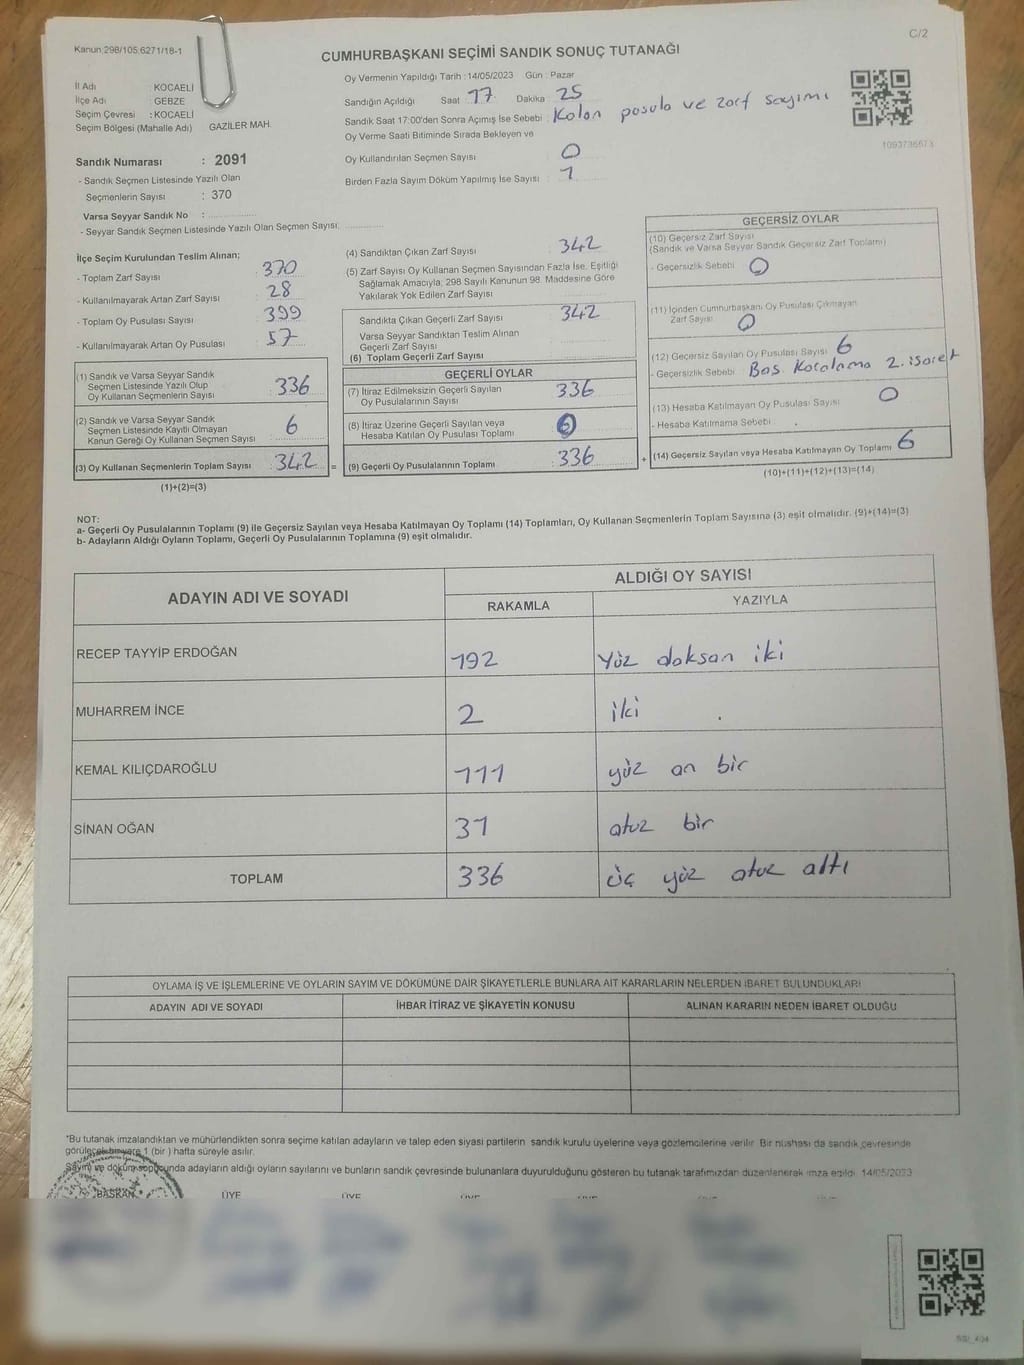 Kanun:298/105:6271/18-1
C/2
CUMHURBAŞKANI SEÇİMİ SANDIK SONUÇ TUTANAĞI
İl Adı KOCAELİ
İlçe Adı GEBZE
Seçim Çevresi : KOCAELİ
Seçim Bölgesi (Mahalle Adı) GAZİLER MAH.
Sandık Numarası : 2091
- Sandık Seçmen Listesinde Yazılı Olan
Seçmenlerin Sayısı : 370
Varsa Seyyar Sandık No :
- Seyyar Sandık Seçmen Listesinde Yazılı Olan Seçmen Sayısı:
Oy Vermenin Yapıldığı Tarih : 14/05/2023 Gün : Pazar
Sandığın Açıldığı Saat 17 Dakika 25
Sandık Saat 17:00'den Sonra Açımış İse Sebebi : Kalan pusula ve zarf sayımı
Oy Verme Saati Bitiminde Sırada Bekleyen ve
Oy Kullandırılan Seçmen Sayısı 0
Birden Fazla Sayım Döküm Yapılmış İse Sayısı : 1
1093736673
İlçe Seçim Kurulundan Teslim Alınan;
- Toplam Zarf Sayısı 370
- Kullanılmayarak Artan Zarf Sayısı 28
- Toplam Oy Pusulası Sayısı 399
- Kullanılmayarak Artan Oy Pusulası 57
(1) Sandık ve Varsa Seyyar Sandık
Seçmen Listesinde Yazılı Olup
Oy Kullanan Seçmenlerin Sayısı 336
(2) Sandık ve Varsa Seyyar Sandık
Seçmen Listesinde Kayıtlı Olmayan
Kanun Gereği Oy Kullanan Seçmen Sayısı 6
(3) Oy Kullanan Seçmenlerin Toplam Sayısı 342 =
(1)+(2)=(3)
(4) Sandıktan Çıkan Zarf Sayısı 342
(5) Zarf Sayısı Oy Kullanan Seçmen Sayısından Fazla İse, Eşitliği
Sağlamak Amacıyla; 298 Sayılı Kanunun 98. Maddesine Göre
Yakılarak Yok Edilen Zarf Sayısı
Sandıkta Çıkan Geçerli Zarf Sayısı 342
Varsa Seyyar Sandıktan Teslim Alınan
Geçerli Zarf Sayısı
(6) Toplam Geçerli Zarf Sayısı
GEÇERLİ OYLAR
(7) İtiraz Edilmeksizin Geçerli Sayılan
Oy Pusulalarının Sayısı 336
(8) İtiraz Üzerine Geçerli Sayılan veya
Hesaba Katılan Oy Pusulası Toplamı
(9) Geçerli Oy Pusulalarının Toplamı 336 +
GEÇERSİZ OYLAR
(10) Geçersiz Zarf Sayısı
(Sandık ve Varsa Seyyar Sandık Geçersiz Zarf Toplamı)
- Geçersizlik Sebebi 0
(11) İçinden Cumhurbaşkanı Oy Pusulası Çıkmayan
Zarf Sayısı 0
(12) Geçersiz Sayılan Oy Pusulası Sayısı 6
- Geçersizlik Sebebi : Boş Karalama 2. işaret
(13) Hesaba Katılmayan Oy Pusulası Sayısı 0
- Hesaba Katılmama Sebebi
(14) Geçersiz Sayılan veya Hesaba Katılmayan Oy Toplamı 6
(10)+(11)+(12)+(13)=(14)
NOT:
a- Geçerli Oy Pusulalarının Toplamı (9) ile Geçersiz Sayılan veya Hesaba Katılmayan Oy Toplamı (14) Toplamları, Oy Kullanan Seçmenlerin Toplam Sayısına (3) eşit olmalıdır. (9)+(14)=(3)
b- Adayların Aldığı Oyların Toplamı, Geçerli Oy Pusulalarının Toplamına (9) eşit olmalıdır.
ADAYIN ADI VE SOYADI
ALDIĞI OY SAYISI
RAKAMLA YAZIYLA
RECEP TAYYİP ERDOĞAN 192 Yüz doksan iki
MUHARREM İNCE 2 iki
KEMAL KILIÇDAROĞLU 111 yüz on bir
SİNAN OĞAN 31 otuz bir
TOPLAM 336 üç yüz otuz altı
OYLAMA İŞ VE İŞLEMLERİNE VE OYLARIN SAYIM VE DÖKÜMÜNE DAİR ŞİKAYETLERLE BUNLARA AİT KARARLARIN NELERDEN İBARET BULUNDUKLARI
ADAYIN ADI VE SOYADI İHBAR İTİRAZ VE ŞİKAYETİN KONUSU ALINAN KARARIN NEDEN İBARET OLDUĞU
*Bu tutanak imzalandıktan ve mühürlendikten sonra seçime katılan adayların ve talep eden siyasi partilerin sandık kurulu üyelerine veya gözlemcilerine verilir. Bir nüshası da sandık çevresinde
1 (bir ) hafta süreyle asılır.
Sayım ve döküm sonucunda adayların aldığı oyların sayılarını ve bunların sandık çevresinde bulunanlara duyurulduğunu gösteren bu tutanak tarafımızdan düzenlenerek imza edildi. 14/05/2023
BAŞKAN ÜYE ÜYE ÜYE ÜYE ÜYE